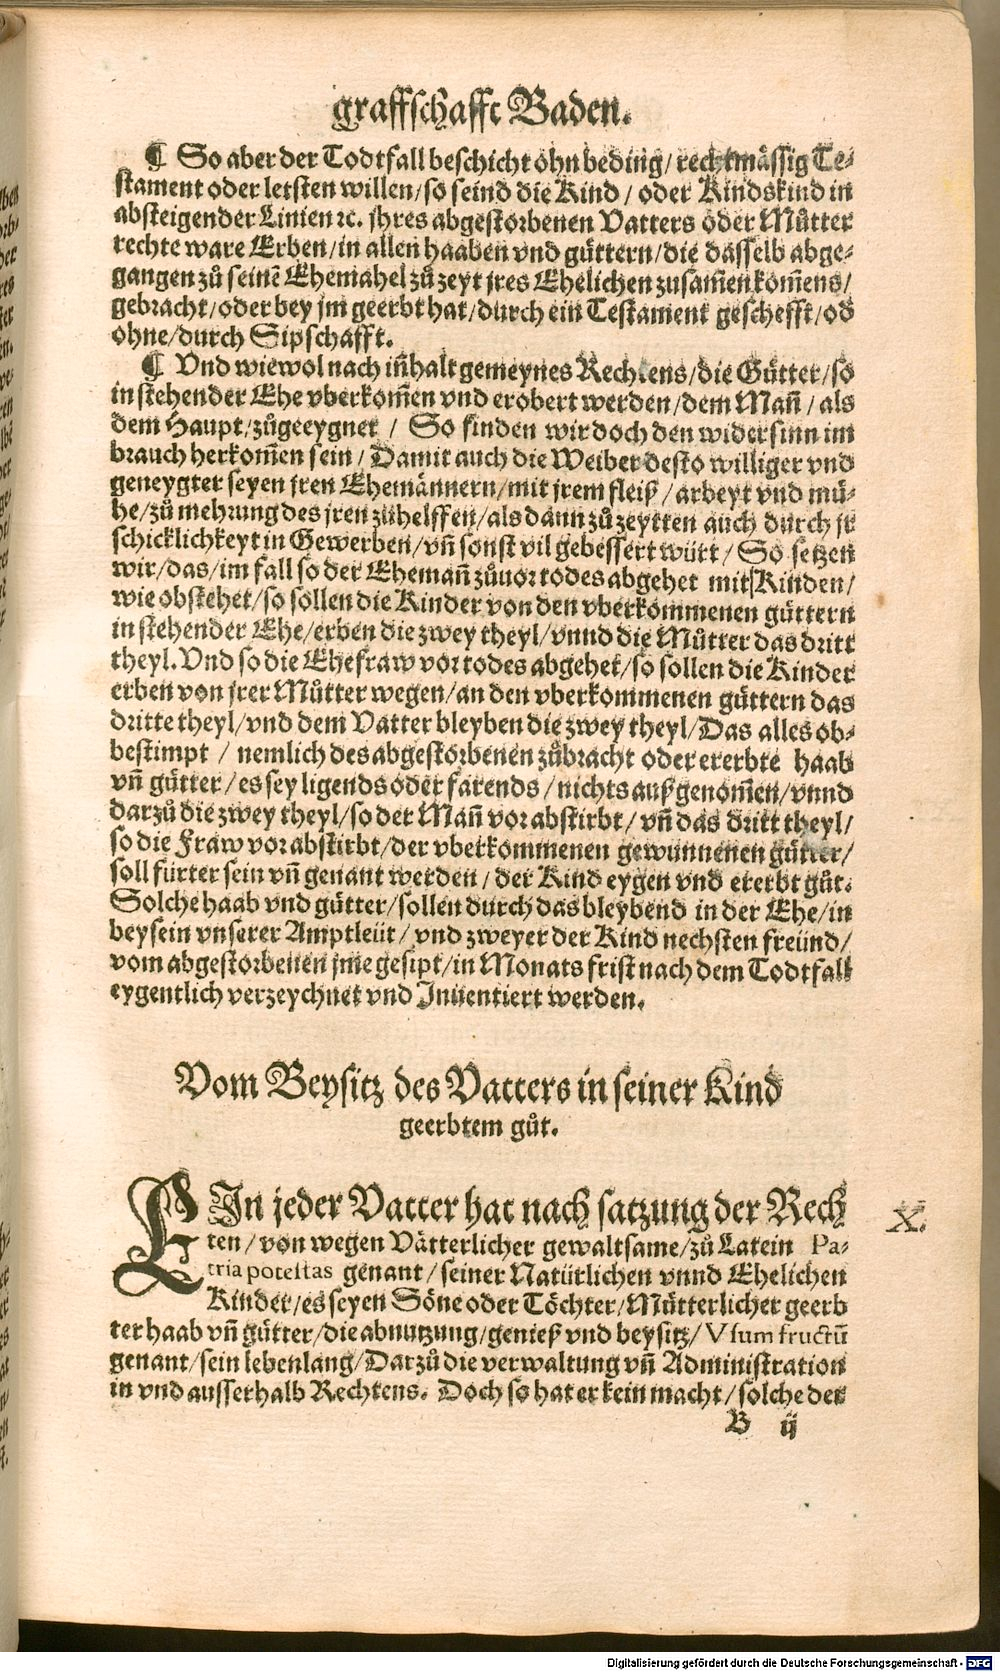 graffschafft Baden.
¶ So aber der Todtfall beschicht ohn beding/ rechtmässig Te-
stament oder letsten willen/so seind die Kind / oder Kindskind in
absteigender Linien ꝛc. jhres abgestorbenen Vatters oder Můtter
rechte ware Erben/in allen haaben vnd güttern/die dasselb abge-
gangen zů seinē Ehemahel zů zeyt jres Ehelichen zusamēkom̄ens/
gebracht/oder bey jm geerbt hat/durch ein Testament geschefft/od
ohne/durch Sipschafft.
¶ Vnd wiewol nach in̄halt gemeynes Rechtens/die Gütter/so
in stehender Ehe vberkom̄en vnd erobert werden/dem Man̄/ als
dem Haupt/zůgeeygnet / So finden wir doch den widersinn im
brauch herkom̄en sein/ Damit auch die Weiber desto williger vnd
geneygter seyen jren Ehemännern/mit jrem fleiß/ arbeyt vnd mü-
he/zů mehrung des jren zůhelffen/als dann zů zeytten auch durch jr
schicklichkeyt in Gewerben/vn̄ sonst vil gebessert würt/ So setzen
wir/das/im fall so der Eheman̄ zůuor todes abgehet mit Kinden/
wie obstehet/so sollen die Kinder von den vberkommenen güttern
in stehender Ehe/erben die zwey theyl/vnnd die Můtter das dritt
theyl. Vnd so die Ehefraw vor todes abgehet/so sollen die Kinder
erben von jrer Můtter wegen/an den vberkommenen güttern das
dritte theyl/vnd dem Vatter bleyben die zwey theyl/Das alles ob-
bestimpt / nemlich des abgestorbenen zůbracht oder ererbte haab
vn̄ gütter/es sey ligends oder farends/nichts außgenom̄en/vnnd
darzů die zwey theyl/so der Man̄ vor abstirbt/ vn̄ das dritt theyl/
so die Fraw vor abstirbt/der vberkommenen gewunnenen gütter/
soll fürter sein vn̄ genant werden/ der Kind eygen vnd ererbt gůt.
Solche haab vnd gütter/sollen durch das bleybend in der Ehe/in
beysein vnserer Amptleüt/ vnd zweyer der Kind nechsten freünd/
vom abgestorbenen jme gesipt/in Monats frist nach dem Todtfall
eygentlich verzeychnet vnd Inuentiert werden.
Vom Beysitz des Vatters in seiner Kind
geerbtem gůt.
EIn jeder Vatter hat nach satzung der Rech
ten/ von wegen Vätterlicher gewaltsame/zů Latein Pa-
tria potestas genant/ seiner Natürlichen vnnd Ehelichen
Kinder/es seyen Söne oder Töchter/Můtterlicher geerb
ter haab vn̄ gütter/die abnutzung/genieß vnd beysitz/ Vsumfructū
genant/sein lebenlang/Darzů die verwaltung vn̄ Administration
in vnd ausserhalb Rechtens. Doch so hat er kein macht/solche der
X.
B ij
Digitalisierung gefördert durch die Deutsche Forschungsgemeinschaft - DFG